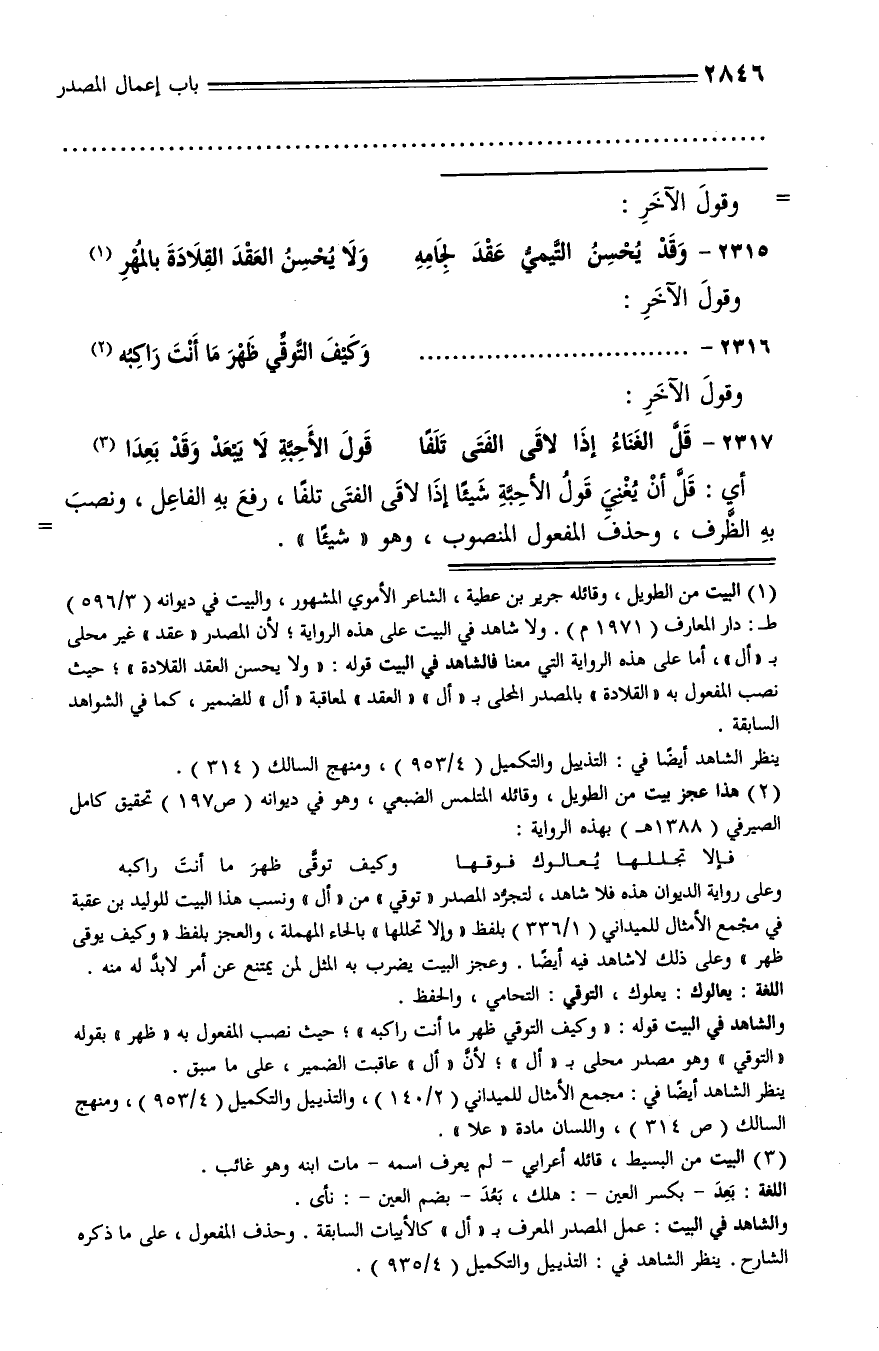 ٢٨٤٦ باب إعمال المصدر
................................................................................
= وقولَ الآخَرِ :
٢٣١٥ - وَقَدْ يُحْسِنُ التَّيميُّ عَقْدَ لِجَامِهِ وَلَا يُحْسِنُ العَقْدَ القِلَادَةَ بالمُهْرِ (١)
وقولَ الآخَرِ :
٢٣١٦ - ................................ وَكَيْفَ التَّوقِّي ظَهْرَ مَا أَنْتَ رَاكِبُه (٢)
وقولَ الآخَرِ :
٢٣١٧ - قَلَّ الغَنَاءُ إذَا لاقَى الفَتَى تَلَفًا قَولَ الأَحِبَّةِ لَا يَبْعَدْ وَقَدْ بَعِدَا (٣)
أي : قَلَّ أنْ يُغْنِيَ قَولُ الأحِبَّةِ شَيئًا إذَا لاقَى الفتَى تلفًا ، رفعَ بهِ الفاعِل ، ونصبَ
بهِ الظَّرف ، وحذفَ المفعول المنصوب ، وهو « شيئًا » . =
(١) البيت من الطويل ، وقائله جرير بن عطية ، الشاعر الأموي المشهور ، والبيت في ديوانه ( ٥٩٦/٣ )
طـ : دار المعارف ( ١٩٧١ م ) . ولا شاهد في البيت على هذه الرواية ؛ لأن المصدر « عقد » غير محلى
بـ « أل » ، أما على هذه الرواية التي معنا فالشاهد في البيت قوله : « ولا يحسن العقد القلادة » ؛ حيث
نصب المفعول به « القلادة » بالمصدر المحلى بـ « أل » « العقد » لمعاقبة « أل » للضمير ، كما في الشواهد
السابقة .
ينظر الشاهد أيضًا في : التذييل والتكميل ( ٩٥٣/٤ ) ، ومنهج السالك ( ٣١٤ ) .
(٢) هذا عجز بيت من الطويل ، وقائله المتلمس الضبعي ، وهو في ديوانه ( ص١٩٧ ) تحقيق كامل
الصيرفي ( ١٣٨٨هـ ) بهذه الرواية :
فـإلا تجـلـلـهـا يُـعـالـوك فـوقـهـا وكيف توقَّى ظهرَ ما أنتَ راكبه
وعلى رواية الديوان هذه فلا شاهد ، لتجرُّد المصدر « توقي » من « أل » ونسب هذا البيت للوليد بن عقبة
في مجْمع الأمثال للميداني ( ٣٣٦/١ ) بلفظ « وإلا تحللها » بالحاء المهملة ، والعجز بلفظ « وكيف يوقى
ظهر » وعلى ذلك لاشاهد فيه أيضًا . وعجز البيت يضرب به المثل لمن يمتنع عن أمر لابدَّ له منه .
اللغة : يعالوك : يعلوك ، التوقي : التحامي ، والحفظ .
والشاهد في البيت قوله : « وكيف التوقي ظهر ما أنت راكبه » ؛ حيث نصب المفعول به « ظهر » بقوله
« التوقي » وهو مصدر محلى بـ « أل » ؛ لأنَّ « أل » عاقبت الضمير ، على ما سبق .
ينظر الشاهد أيضًا في : مجمع الأمثال للميداني ( ١٤٠/٢ ) ، والتذييل والتكميل ( ٩٥٣/٤ ) ، ومنهج
السالك ( ص ٣١٤ ) ، واللسان مادة « علا » .
(٣) البيت من البسيط ، قائله أعرابي – لم يعرف اسمه – مات ابنه وهو غائب .
اللغة : بَعِدَ – بكسر العين – : هلك ، بَعُدَ – بضم العين – : نأى .
والشاهد في البيت : عمل المصدر المعرف بـ « أل » كالأبيات السابقة . وحذف المفعول ، على ما ذكره
الشارح . ينظر الشاهد في : التذييل والتكميل ( ٩٣٥/٤ ) .